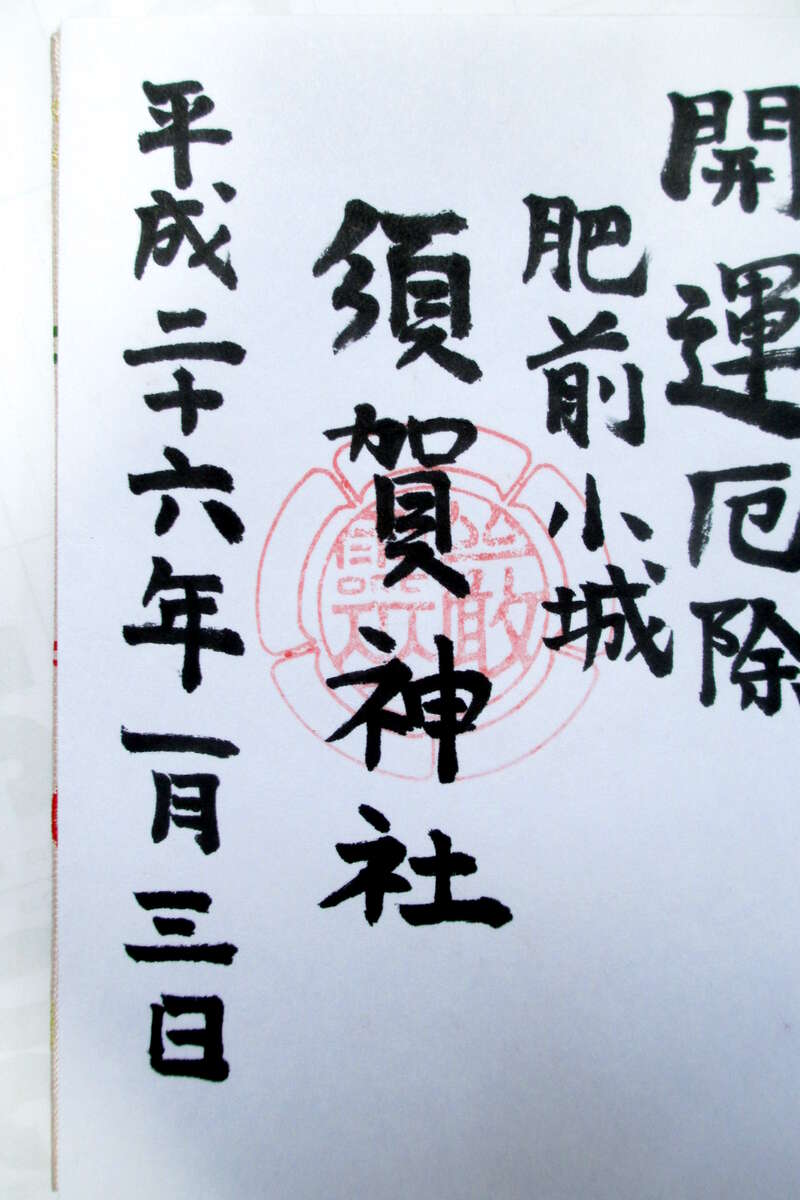 開運厄除
肥前小城
須賀神社
平成二十六年一月三日